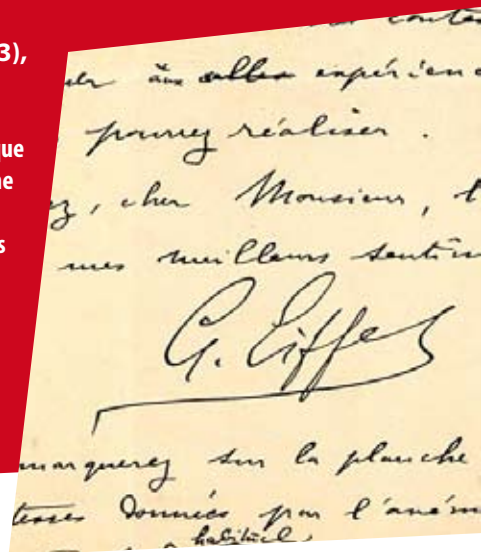 3),
que
ne
s
conte
aux celles expérienc
pourrez réaliser .
ez, cher Monsieur, l
mes meilleurs sentim
G. Eiffel
marquerez sur la planche
tesses données par l'aném
habituel